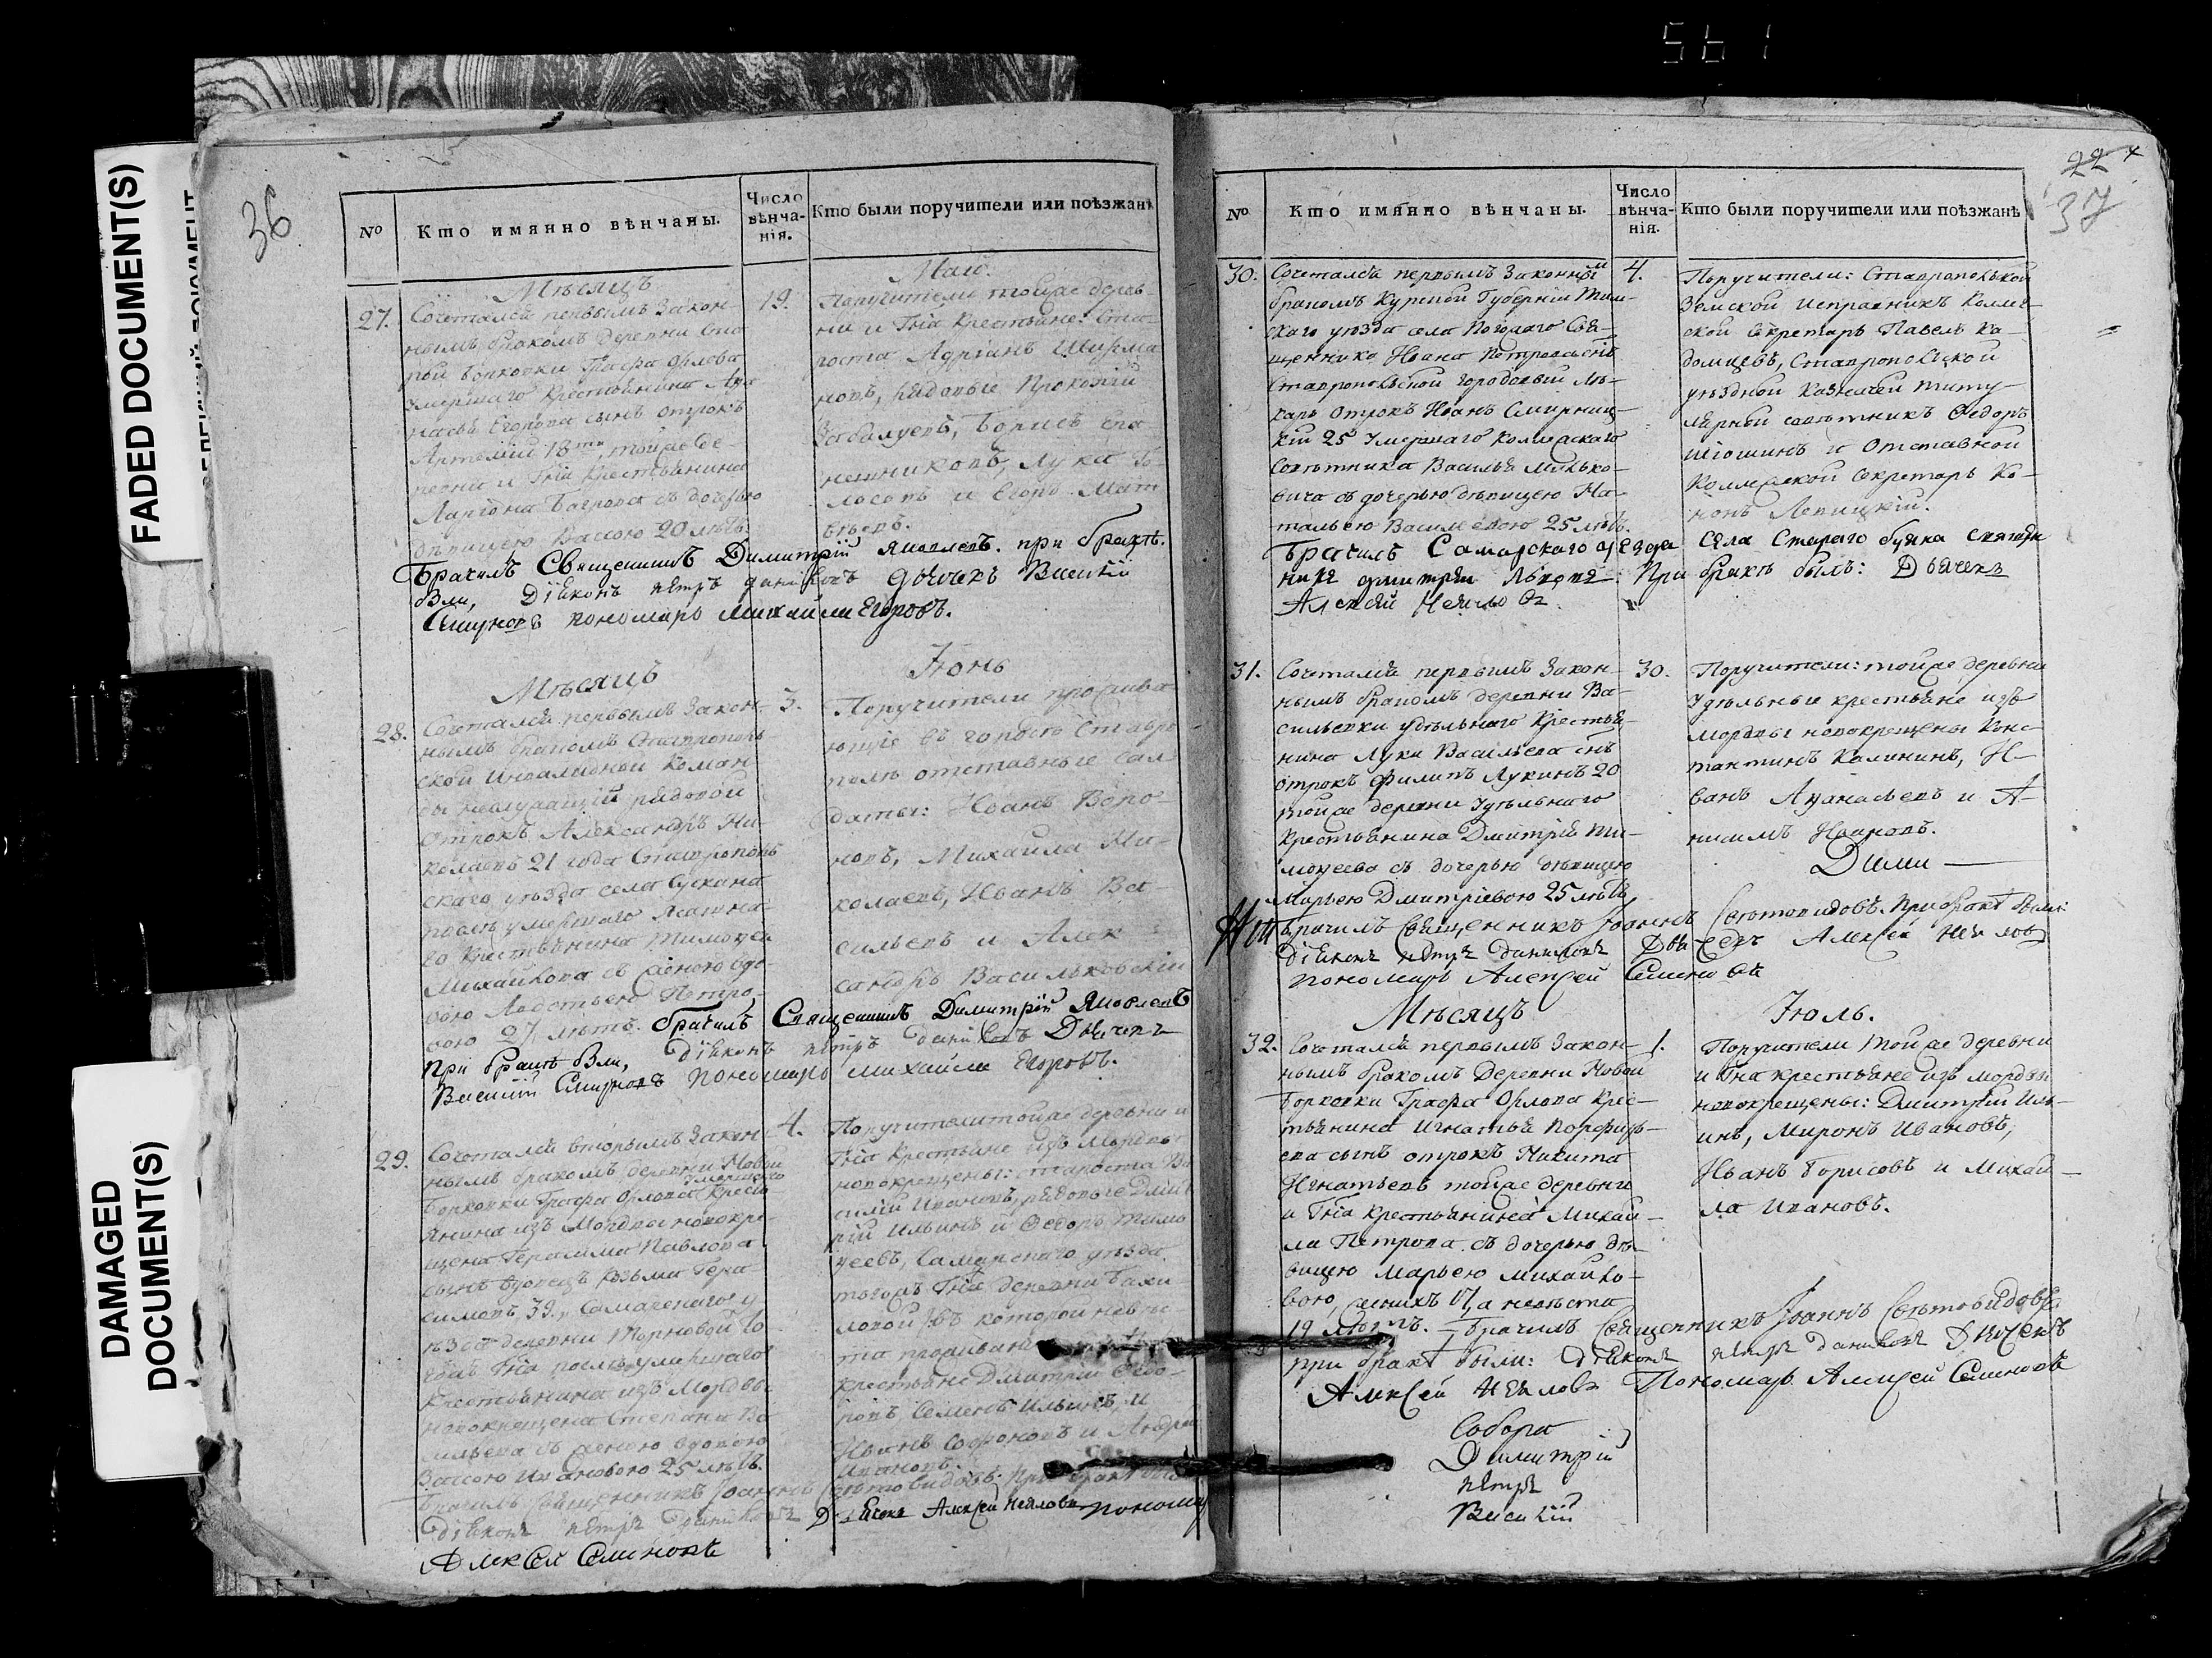 561
FADED DOCUMENT(S)
DAMAGED
DOCUMENT(S)
36
№
Кто имянно вѣнчаны.
Число
вѣнча-
нія.
Кто были поручители или поѣзжанѣ
Мѣсяцъ
Маій.
27.
Сочетался первымъ закон-
нымъ бракомъ деревни Ста
рой Борковки Графа Орлова
умершаго крестьянина Ѳна
насья Егорова сынъ отрокъ
Артемій 18ти, тойже де-
ревни и Гна крестьянина
Лариона Багрова съ дочерью
девицею Вассою 20 лѣтъ.
19.
Поручители тойже дерев-
ни и Гна крестьяне: Ста-
роста Адріанъ Ширма
новъ, рядовые Прокофій
Забалуевъ, Борисъ
Лука Го-
лосовъ и Егоръ Мат
вѣевъ.
Брачилъ Священникъ Димитрій Яковлевъ. при бракѣ
бли, Діяконъ петръ даниловъ дьячекъ Василій
Смирновъ пономарь михайла Егоровъ.
Мѣсяцъ
Іюнь
28.
Сочетался первымъ закон-
нымъ бракомъ Ставрополь-
ской Инвалидной коман-
ды рядовой
отрокъ Александръ Ни-
колаевъ 21 года Ставрополь
скаго уѣзда села Сускана
послѣ умершаго Ясашна-
го крестьянина Тимофея
Михайлова съ женою вдо-
вою Авдотьею Петро-
вою 27 лѣтъ.
3.
Поручители прожива
ющіе въ городѣ Ставро
полѣ отставные сал-
даты: Иванъ Воро-
новъ, Михайла Ни-
колаевъ, Иванъ Ва-
сильевъ и Алек
сандръ Васильковскій
брачилъ Священникъ Димитрій Яковлевъ
При бракѣ бли, Діяконъ петръ даниловъ Дьячекъ
Василій Смирновъ пономарь михайла Егоровъ.
29.
Сочетался вторымъ закон-
нымъ бракомъ деревни Новой
умершаго
Борковки Графа Орлова кресть-
янина изъ Мордвы новокре-
щена Герасима Павлова
сынъ вдовецъ Козьма Гера
симовъ 39., Самарскаго у
ѣзда деревни Торновой то-
гожъ Гна послѣ умершаго
крестьянина изъ Мордвы
новокрещена Степана Ва
сильева съ женою вдовою
Вассою Ивановою 25 лѣтъ.
4.
Поручители тойже деревни и
Гна крестьяне изъ Мордвы
новокрещены: староста Ва
силій Ивановъ, рядовые Дмит
рій Ильинъ и Ѳедоръ Тимо
ѳеевъ, Самарскаго уѣзда
тогожъ Гна деревни Бахи-
ловой въ которой невѣс-
та проживаетъ
крестьяне Дмитрій Ѳедо-
ровъ, Семенъ Ильинъ, и
Иванъ Софоновъ и Андрей
Ивановъ.
Брачилъ Священникъ Іоаннъ Свѣтовидовъ. При бракѣ были
діяконъ петръ даниловъ Дьячекъ Алексѣй Неяловъ пономарь
Алексѣй Семеновъ
22
37
№
Кто имянно вѣнчаны.
Число
вѣнча-
нія.
Кто были поручители или поѣзжанѣ
30.
Сочетался первымъ законнымъ
бракомъ Курской Губерніи Тим-
скаго уѣзда села Погожаго Свя-
щенника Ивана Петрова сынъ
Ставропольской городовый лѣ-
карь отрокъ Иванъ Смирниц-
кій 25 Умершаго Коллежскаго
Совѣтника Василья Милько-
вича съ дочерью дѣвицею На-
тальею Васильевою 25 лѣтъ.
4.
Поручители: Ставропольской
Земской Исправникъ Коллеж-
ской Секретарь Павелъ Ка-
домцевъ, Ставропольской
уѣздной Казначей титу-
лярный совѣтникъ Ѳедоръ
Шошинъ и Отставной
Коллежской Секретарь Ко-
нонъ Левицкій.
Брачилъ Самарскаго уезда села Стараго буяна священ
никъ дмитрій Львовъ: При бракѣ былъ: Дьячекъ
Алексѣй Неяловъ.
31.
Сочетался первымъ закон-
нымъ бракомъ деревни Ва-
сильевки удѣльнаго крестья-
нина Луки Васильева снъ
отрокъ Филипъ Лукинъ 20
тойже деревни удѣльнаго
крестьянина Дмитрія Ти-
моѳеева съ дочерью дѣвицею
Марьею Дмитріевою 25 лѣтъ
30.
Поручители: тойже деревни
Удѣльные крестьяне изъ
мордвы новокрещены Конс-
тантинъ Калининъ, И-
ванъ Аѳанасьевъ и А-
нисимъ Ивановъ.
Дими
Брачилъ Священникъ Іоаннъ Свѣтовидовъ. При бракѣ были:
діяконъ петръ даниловъ Дьячекъ Алексѣй Неяловъ
пономарь Алексѣй Семеновъ
Мѣсяцъ
Іюль.
32.
Сочетался первымъ закон-
нымъ бракомъ деревни Новой
Борковки Графа Орлова крес-
тьянина Игнатья Порфирь-
ева сынъ отрокъ Никита
Игнатьевъ тойже деревни
и Гна крестьянина Михай-
ла Петрова съ дочерью дѣ-
вицею Марьею Михайло-
вою, женихъ 17, а невѣста
19 лѣтъ.
1.
Поручители тойже деревни
и Гна крестьяне изъ мордвы
новокрещены: Дмитрій Иль-
инъ, Миронъ Ивановъ,
Иванъ Борисовъ и Михай-
ла Ивановъ.
Брачилъ Священникъ Іоаннъ Свѣтовидовъ
при бракѣ были: діяконъ петръ даниловъ Дьячекъ
Алексѣй Неяловъ Пономарь Алексѣй Семеновъ
Собора
Димитрій
петръ
Василій